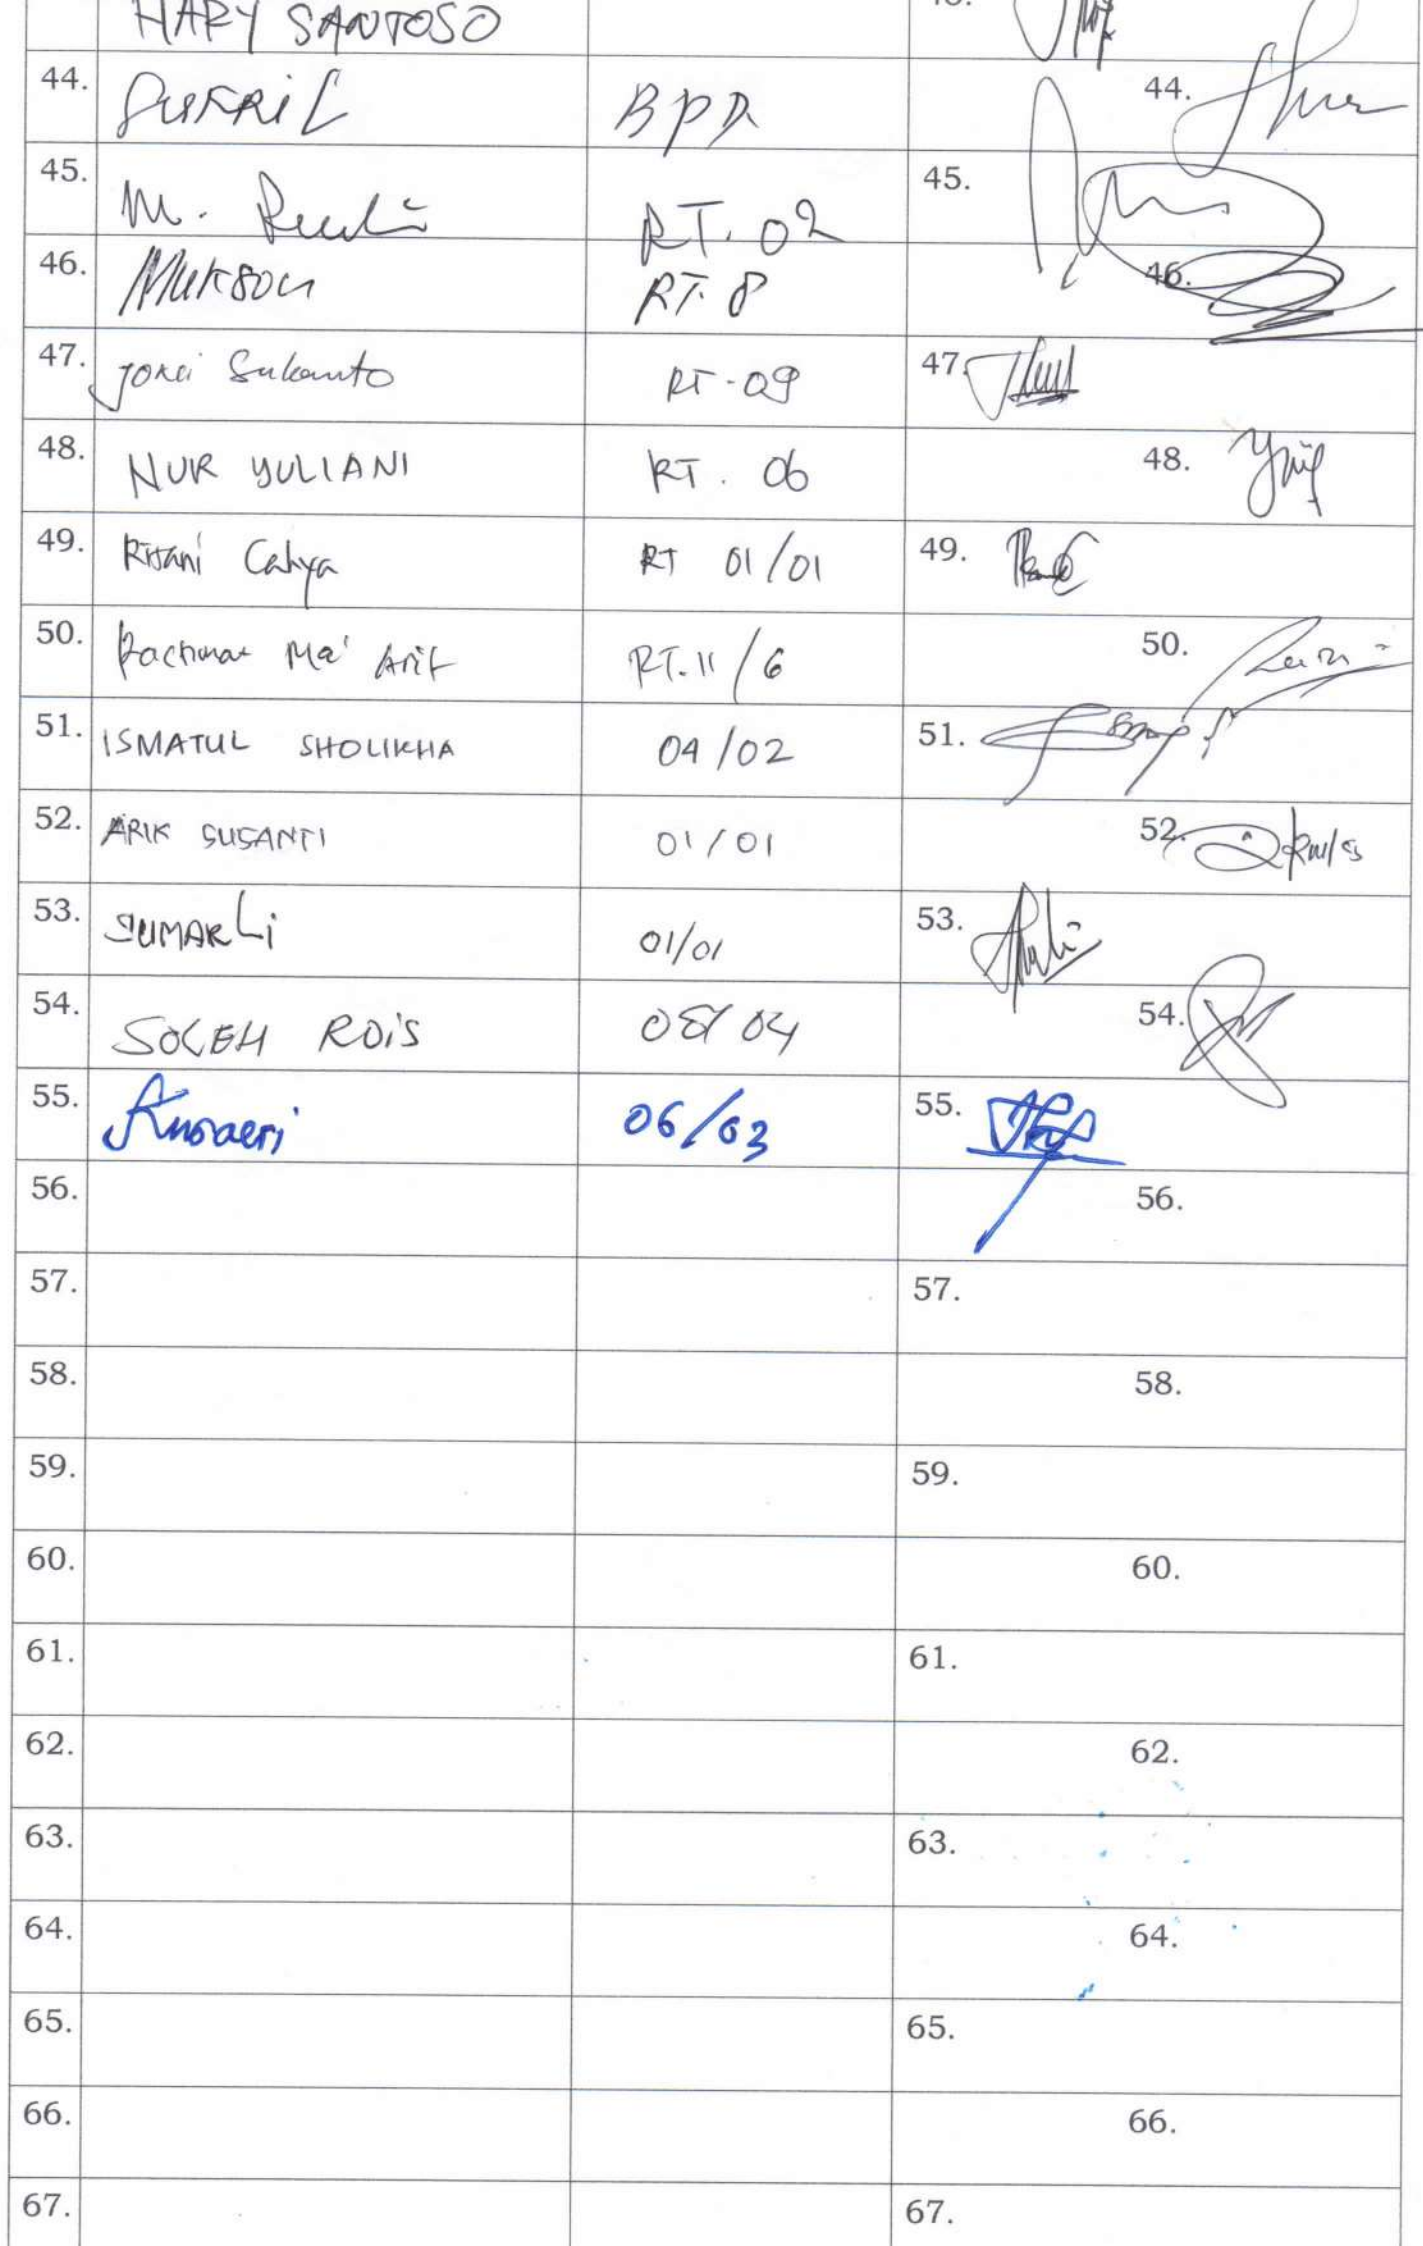 HARY SANTOSO
44. BPD 44.
45. M. RT. 02 45.
46. RT. 8 46.
47. Sukanto RT-09 47.
48. NUR YULIANI RT. 06 48.
49. Cahya RT 01/01 49.
50. Rachmat Ma' Arif RT. 11/6 50.
51. ISMATUL SHOLIKHA 04/02 51.
52. ARIK SUSANTI 01/01 52.
53. SUMARLi 01/01 53.
54. SOLEH ROiS 08/04 54.
55. Kusaeri 06/03 55.
56. 56.
57. 57.
58. 58.
59. 59.
60. 60.
61. 61.
62. 62.
63. 63.
64. 64.
65. 65.
66. 66.
67. 67.